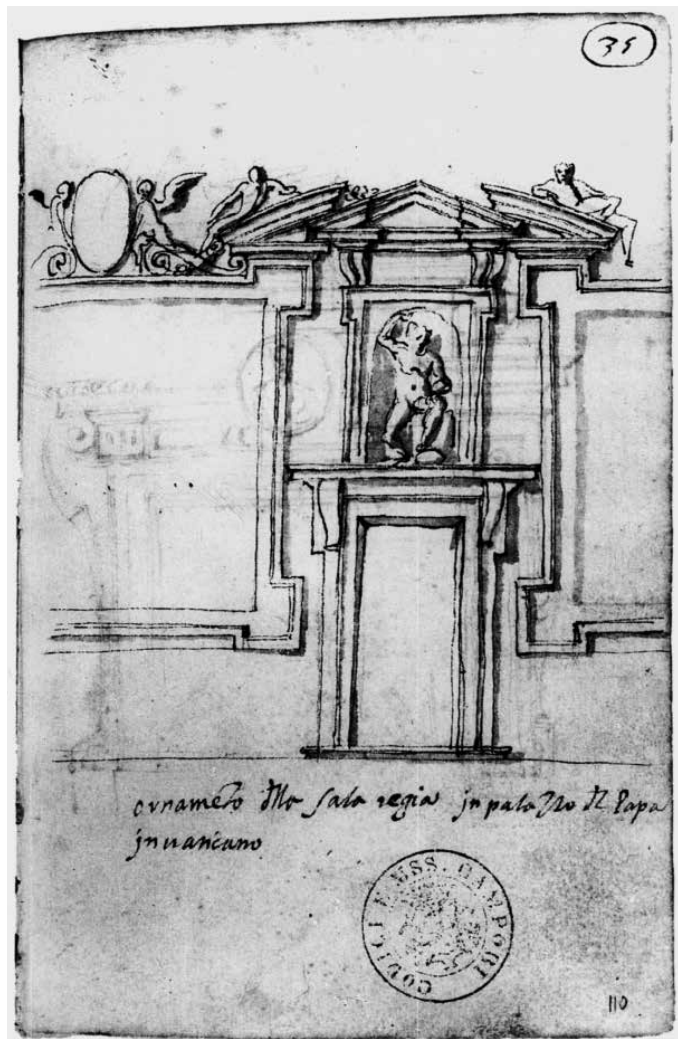 35
ornameto dlla sala regia in palazzo dl Papa
in vaticano
CODICI E MSS. CAMPORI
110